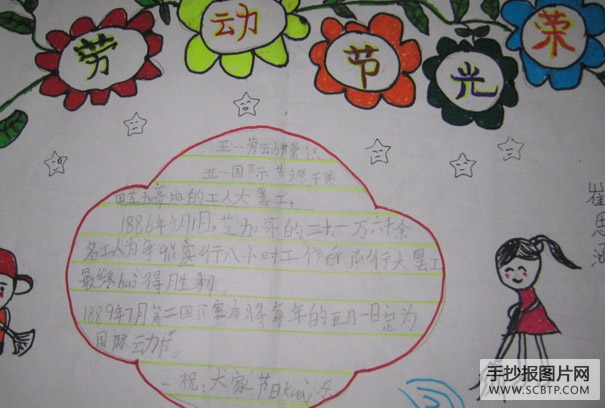 劳动节光荣
五一劳动节常识
五一国际 节源于美
国芝加哥 的工人大罢工,
1886年5月1日,芝加哥的二十一万六千余
名工人为争 实行八小时工作 而行大罢工
最终huò得胜利,
1889年7月第二国 宣布将每年的五月一日定为
国际 动节。
一祝:大家节日kuài乐
崔思涵
手抄报图片网
WWW.SCBTP.COM